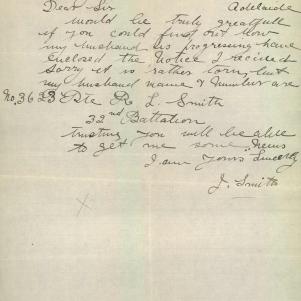 Dear Sir Adelaide
would be truly greatfull
if you could find out how
my husband is progressing have
enclosed the Notice I received
sorry it is rather torn, but
my husband name & number are
No. 3623 Pte R L. Smith
32nd Battalion
trusting you will be able
to get me some News
I am Yours Sincerely
J. Smith